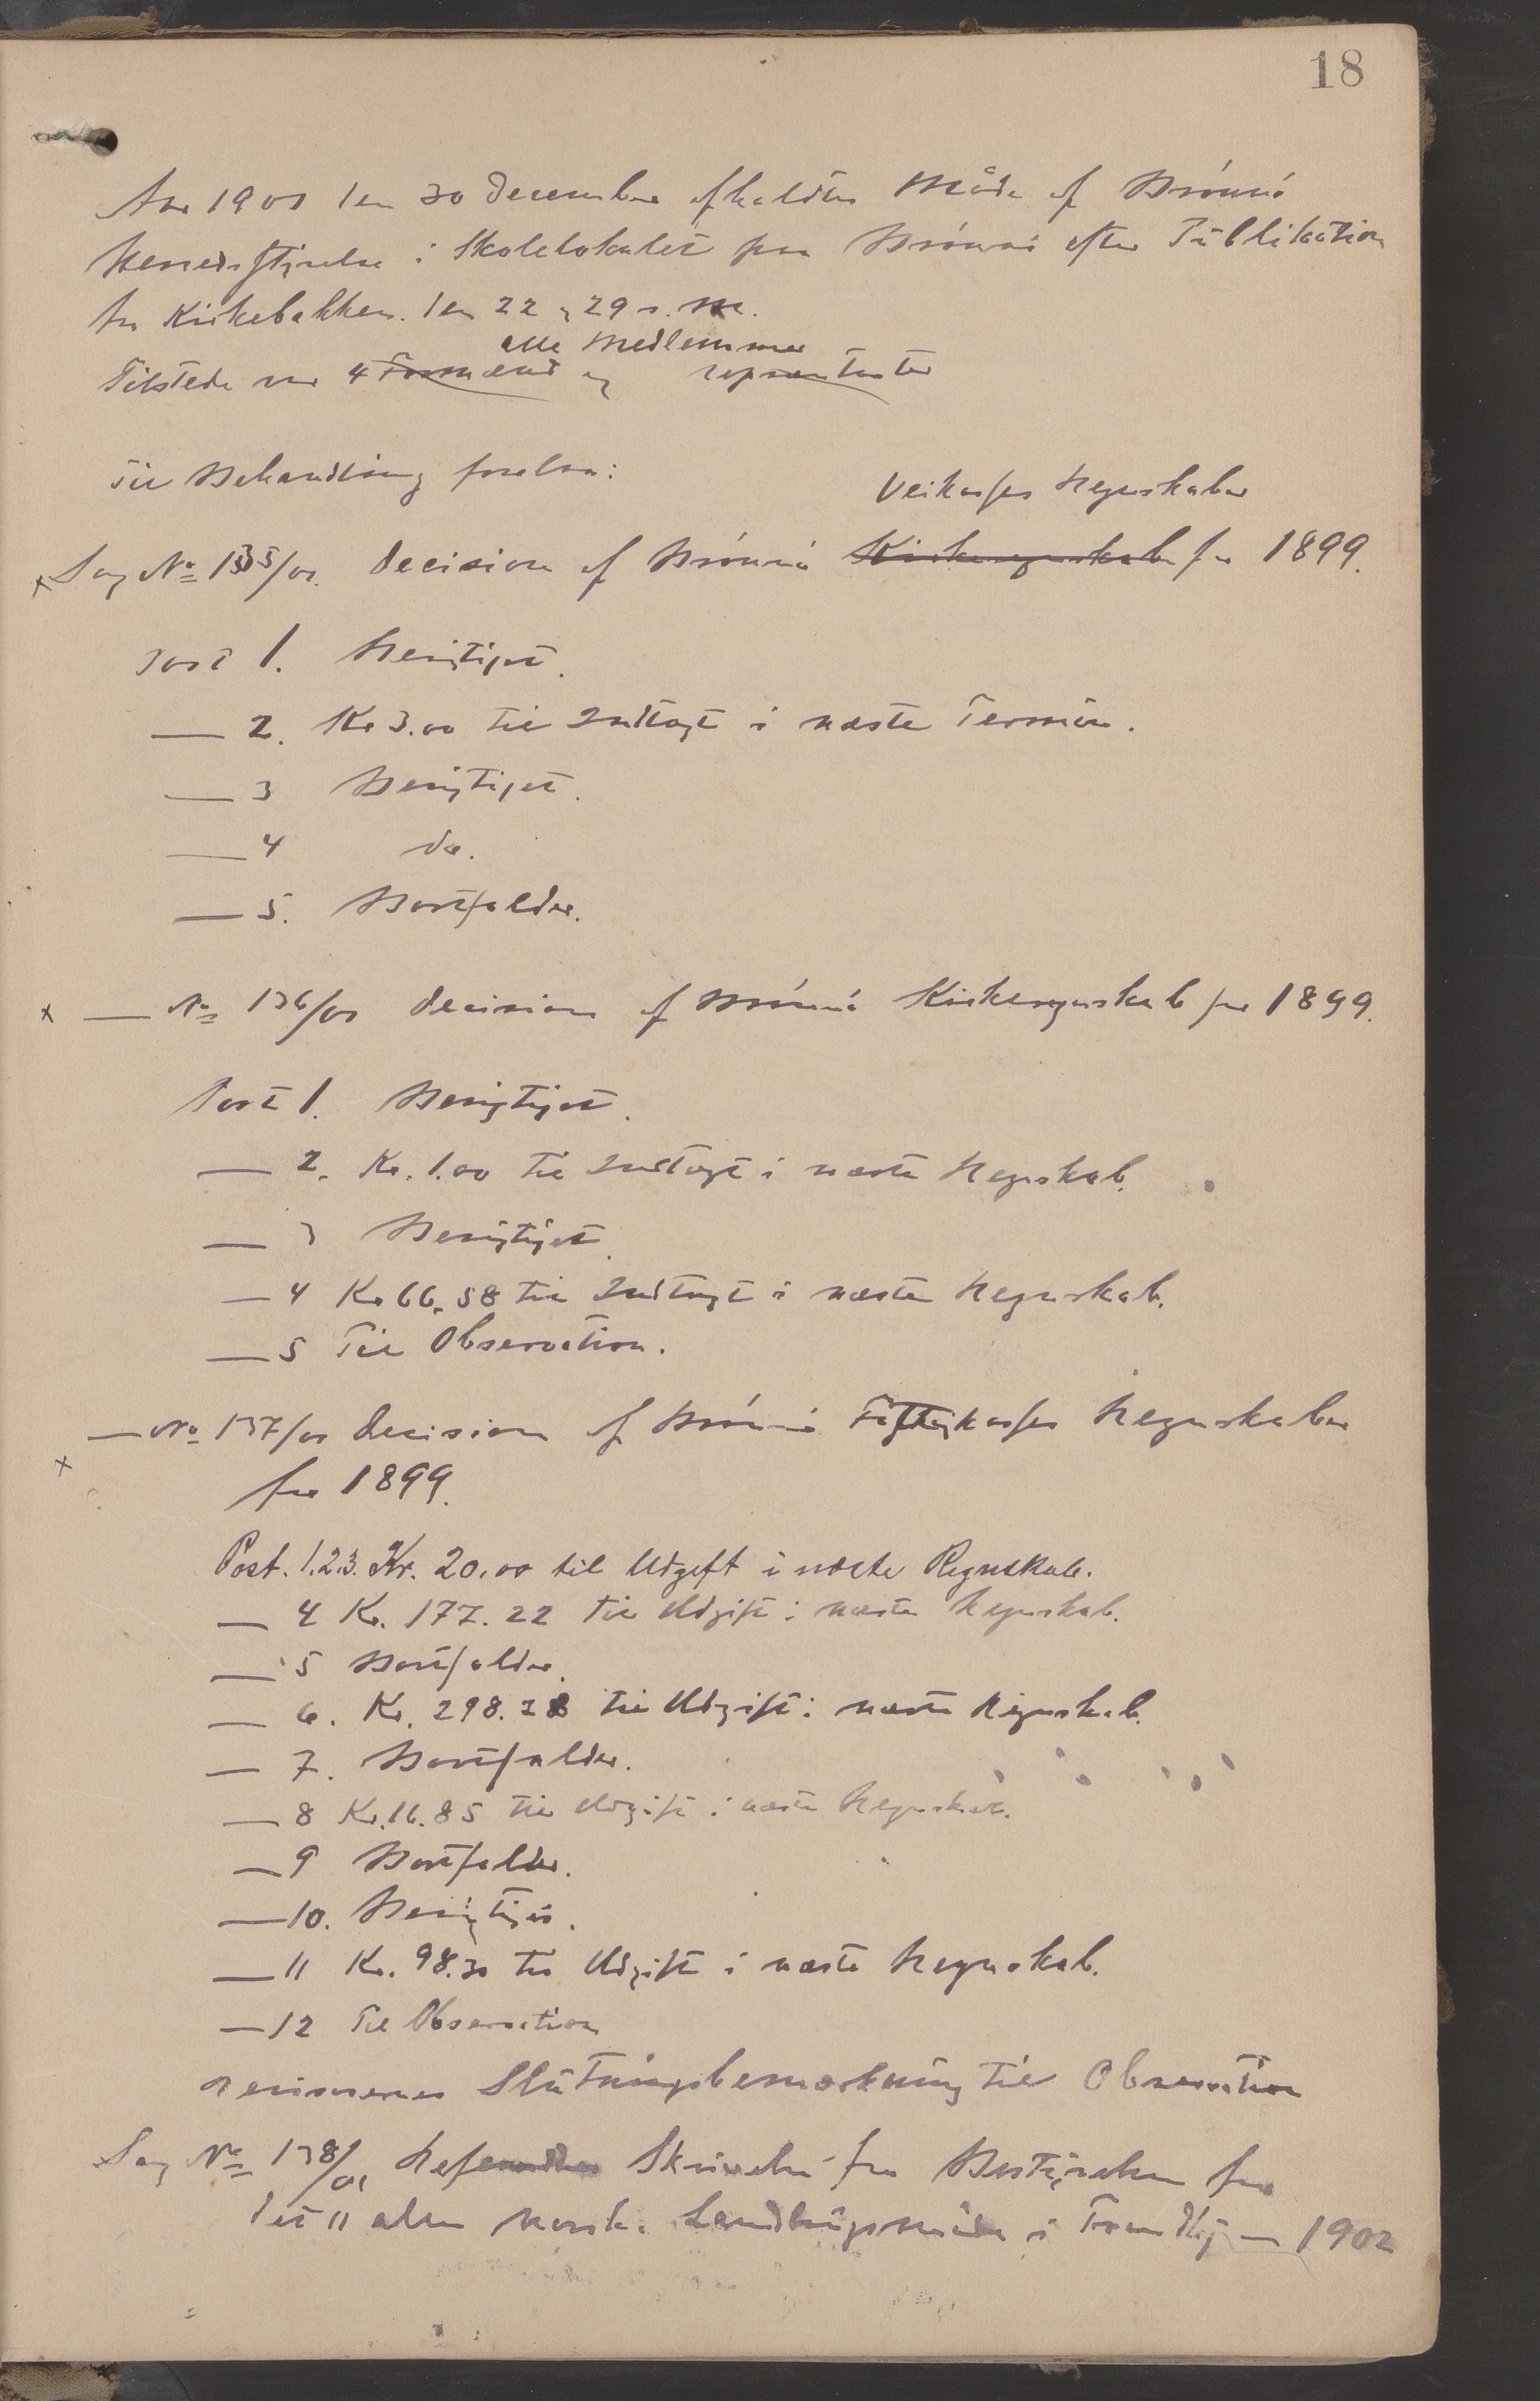 18
Aar 1901 den 30 December afholdtes Møde af Brønnø
Herredsstyrelse i Skolelokalet paa Brønnø efter Publikation
fra Kirkebakken den 22 og 29 s. M.
alle Medlemmer
Tilstede var 4 Formænd og repræsentanter
Til Behandling forelaa:
Veikasses Regnskaber
Sag No 135/01. Decision af Brønnø Kirkeregnskab for 1899.
Post 1. Berigtiget.
— 2. Kr 3.00 til Indtægt i næste Termin.
— 3 Berigtiget.
— 4 do.
— 5. Bortfalder.
— No 136/01 Decision af Brønnø Kirkeregnskab for 1899.
Post 1. Berigtiget.
— 2. Kr. 1.00 til Indtægt i næste Regnskab.
— 3 Berigtiget.
— 4 Kr 66.58 til Indtægt i næste Regnskab.
— 5 Til Observation.
— No 137/01 Decision af Brønnø Fattigkasses Regnskaber
for 1899.
Post. 1.2.3. Kr. 20.00 til Udgift i næste Regnskab.
— 4 Kr. 177.22 til Udgift i næste Regnskab.
— 5 Bortfalder.
— 6. Kr. 298.28 til Udgift i næste Regnskab.
— 7. Bortfalder.
— 8 Kr. 16.85 til Udgift i næste Regnskab.
— 9 Bortfalder.
— 10. Berigtiges.
— 11 Kr. 98.30 til Udgift i næste Regnskab.
— 12 Til Observation
Revisorernes Slutningsbemærkning til Observation
Sag No 138/01 Skrivelse fra Bestyrelsen for
det 11 alm norske Landbrugsmøde i Trondhjem 1902